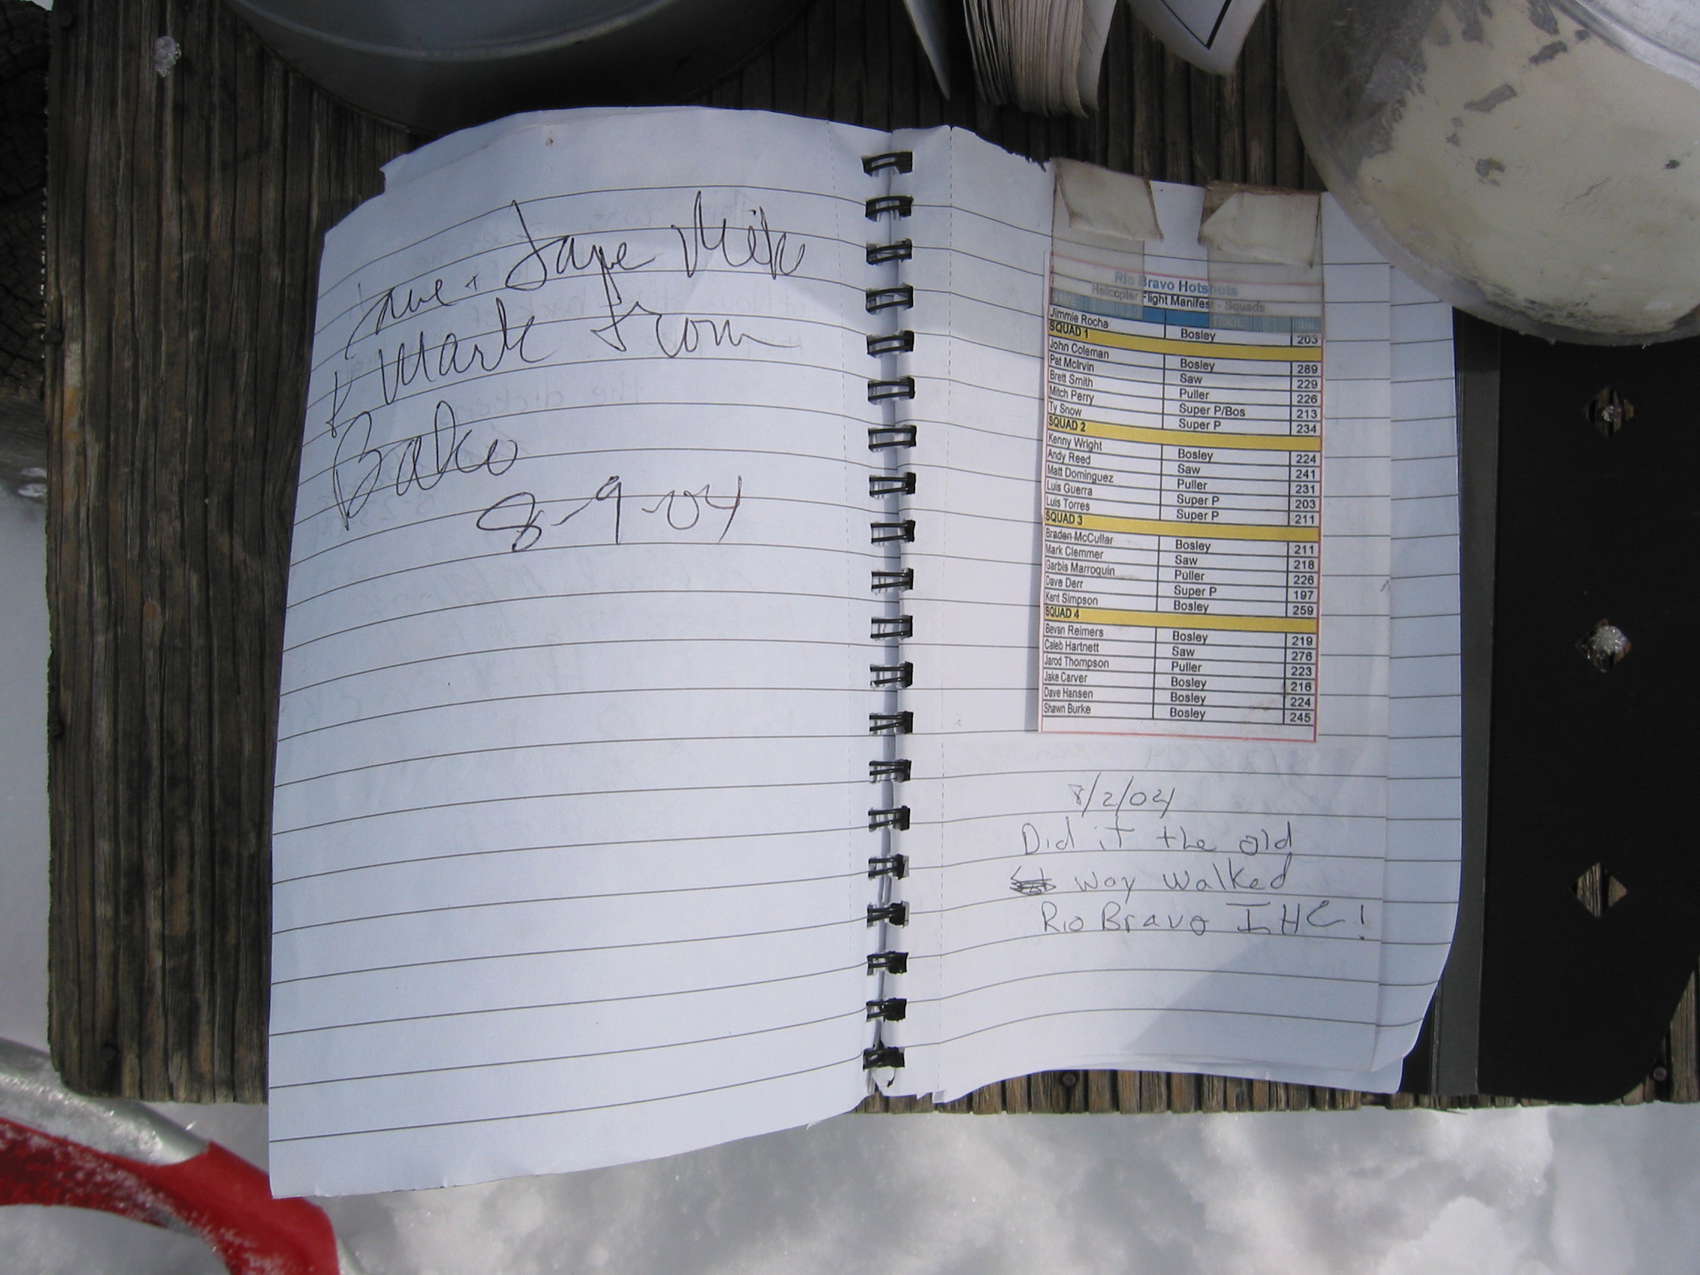 Dave + Jaye Mike
& Mark from
Bako
8-9-04
Rio Bravo Hotshots
Helicopter Flight Manifest - Squads
Jimmie Rocha Bosley 203
SQUAD 1
John Coleman Bosley 289
Pat McIrvin Saw 229
Brett Smith Puller 226
Mitch Perry Super P/Bos 213
Ty Snow Super P 234
SQUAD 2
Kenny Wright Bosley 224
Andy Reed Saw 241
Matt Dominguez Puller 231
Luis Guerra Super P 203
Luis Torres Super P 211
SQUAD 3
Braden McCullar Bosley 211
Mark Clemmer Saw 218
Garbis Marroquin Puller 226
Dave Derr Super P 197
Kent Simpson Bosley 259
SQUAD 4
Bevan Reimers Bosley 219
Caleb Hartnett Saw 276
Jarod Thompson Puller 223
Jake Carver Bosley 216
Dave Hansen Bosley 224
Shawn Burke Bosley 245
8/2/04
Did it the old
way walked
Rio Bravo IHC!